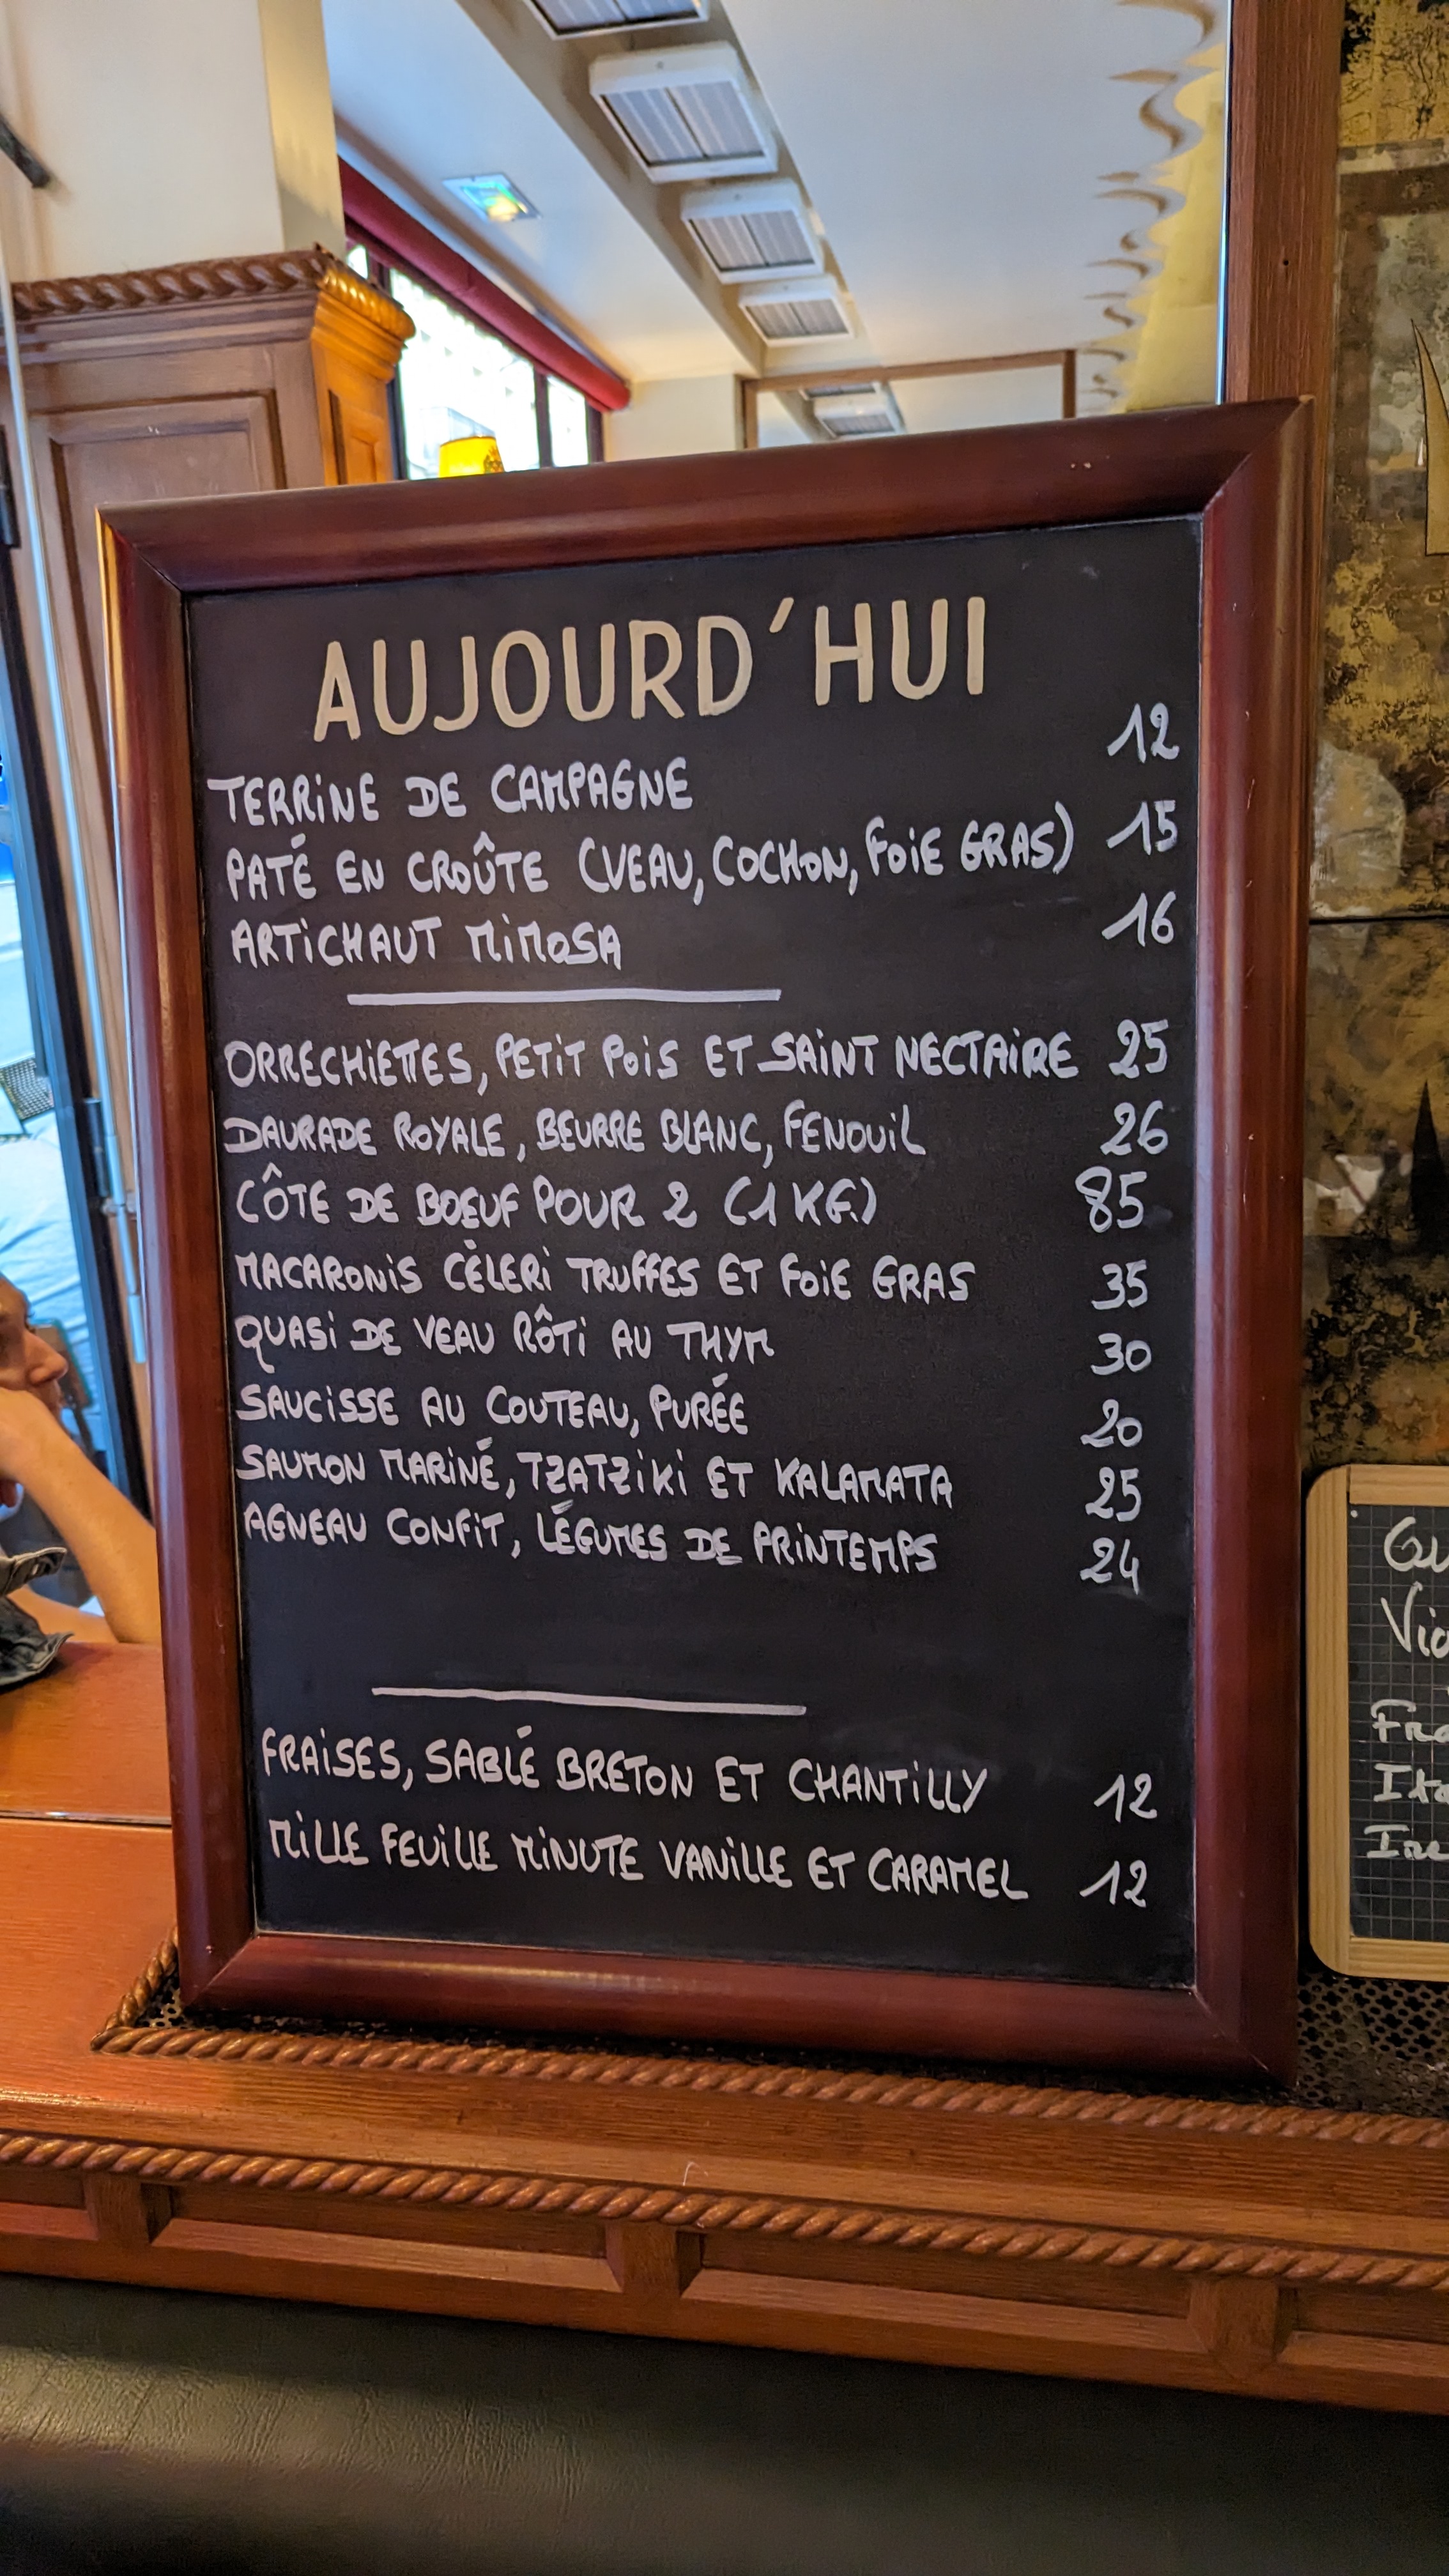 AUJOURD'HUI
TERRINE DE CAMPAGNE 12
PATÉ EN CROÛTE (VEAU, COCHON, FOIE GRAS) 15
ARTICHAUT MIMOSA 16
ORRECHIETTES, PETIT POIS ET SAINT NECTAIRE 25
DAURADE ROYALE, BEURRE BLANC, FENOUIL 26
CÔTE DE BOEUF POUR 2 (1 KG) 85
MACARONIS CÈLERI TRUFFES ET FOIE GRAS 35
QUASI DE VEAU RÔTI AU THYM 30
SAUCISSE AU COUTEAU, PURÉE 20
SAUMON MARINÉ, TZATZIKI ET KALAMATA 25
AGNEAU CONFIT, LÉGUMES DE PRINTEMPS 24
FRAISES, SABLÉ BRETON ET CHANTILLY 12
MILLE FEUILLE MINUTE VANILLE ET CARAMEL 12